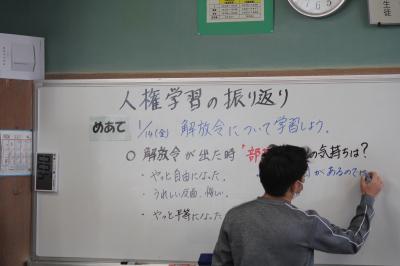 人権学習の振り返り
めあて 1/14(金) 解放令について学習しよう。
○ 解放令が出た時「部 の気持ちは?
・やっと自由になった。
があるので
・うれしい反面、悔しい。
・やっと平等になった